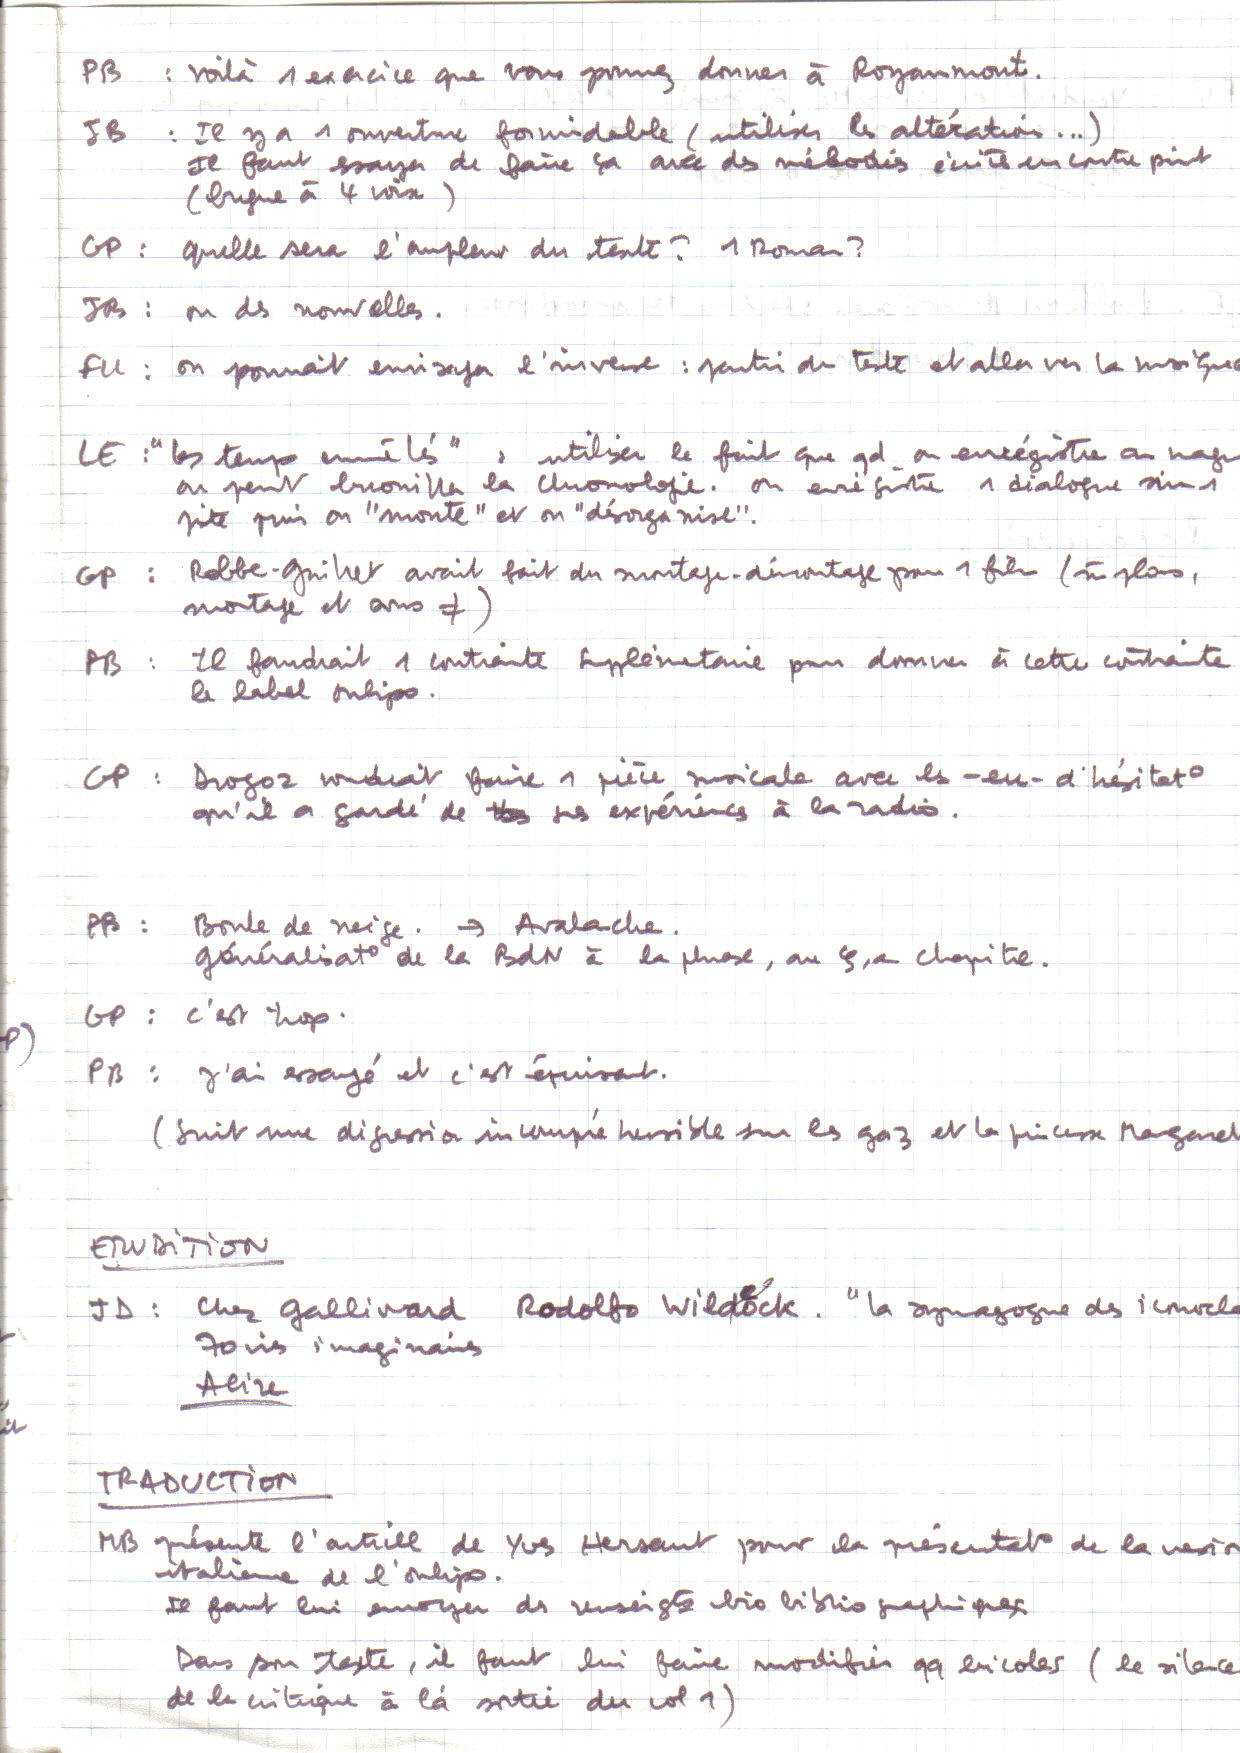 PB : Voilà 1 exercice que vous pourrez donner à Royaumont.
JB : Il y a 1 ouverture formidable (utiliser les altérations...)
Il faut essayer de faire ça avec des mélodies écrite en contre point
(fugue à 4 voix)
GP : quelle sera l'ampleur du texte ? 1 Roman ?
JB : ou des nouvelles.
FLL : on pourrait envisager l'inverse : partir du texte et aller vers la musique
LE : "les temps emmêlés" : utiliser le fait que qd on enrégistre au magn
on peut brouiller la chronologie. on enrégistre 1 dialogue sur 1
piste puis on "monte" et on "désorganise".
GP : Robbe-Grillet avait fait du montage-démontage pour 1 film (m plans,
montage et sens ≠)
PB : Il faudrait 1 contrainte supplémentaire pour donner à cette contrainte
le label oulipo.
GP : Drogoz voudrait faire 1 pièce musicale avec les -eu- d'hésitat°
qu'il a gardé de ses expériences à la radio.
PB : Boule de neige. → Avalanche.
Généralisat° de la BdN à la phrase, au §, au chapitre.
GP : c'est trop.
P)
PB : j'ai essayé et c'est épuisant.
(Suit une digression incompréhensible sur les gaz et la princesse Margaret
ERUDITION
JD : Chez Gallimard Rodolfo Wildcock. "la synagogue des iconocla
70 vies imaginaires
A lire
TRADUCTION
MB présente l'article de Yves Hersant pour la présentat° de la versio
italienne de l'oulipo.
Il faut lui envoyer des renseigts bio bibliographiques
Dans son texte, il faut lui faire modifier qq bricoles (le silence
de la critique à la sortie du vol 1)